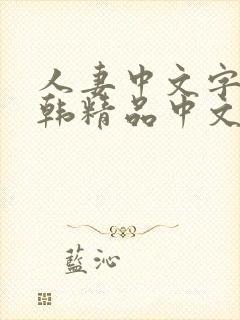 人妻中文字
韩精品中文
藍沁